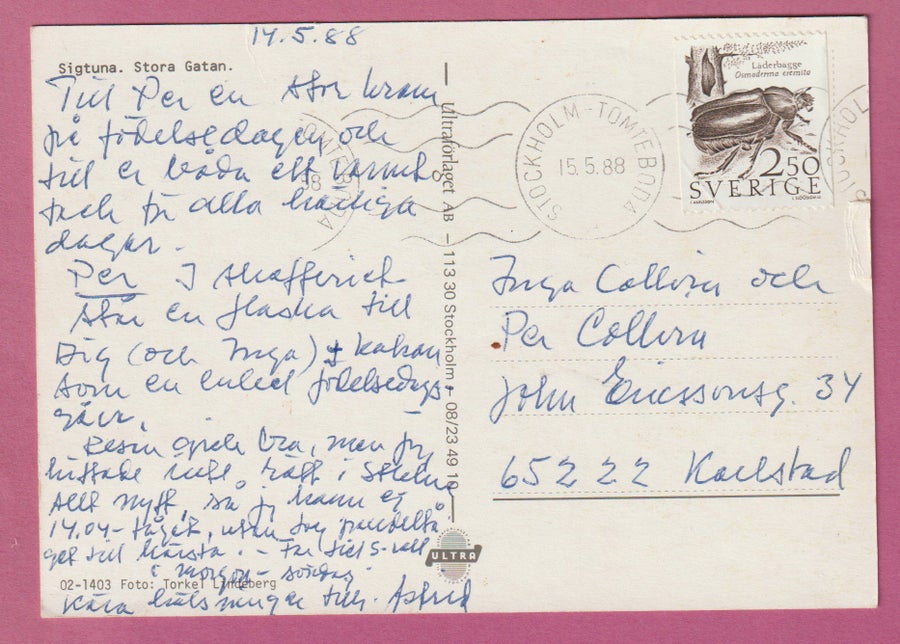 14.5.88
Sigtuna. Stora Gatan.
Till Per en stor kram
på födelsedagen och
till er båda ett varmt
tack för alla härliga
dagar.
Per I skafferiet
står en flaska till
Dig (och Inga) + kakan
som en enkel födelsedags-
gåva.
Resan gick bra, men jag
hittade inte rätt i Sthlm
Allt nytt, så jag hann ej
14.04-tåget, utan tog pendeltå
get till Märsta. - Far till
i morgon - söndag.
Kära hälsningar till. Astrid
02-1403 Foto: Torkel Lindeberg
Ultraförlaget AB – 113 30 Stockholm – 08/23 49 10
ULTRA
STOCKHOLM-TOMTEBODA
15.5.88
Läderbagge
Osmoderma eremita
2.50
SVERIGE
STOCKHOLM
Inga Collvin och
Per Collvin
John Ericssonsg. 34
652 22 Karlstad